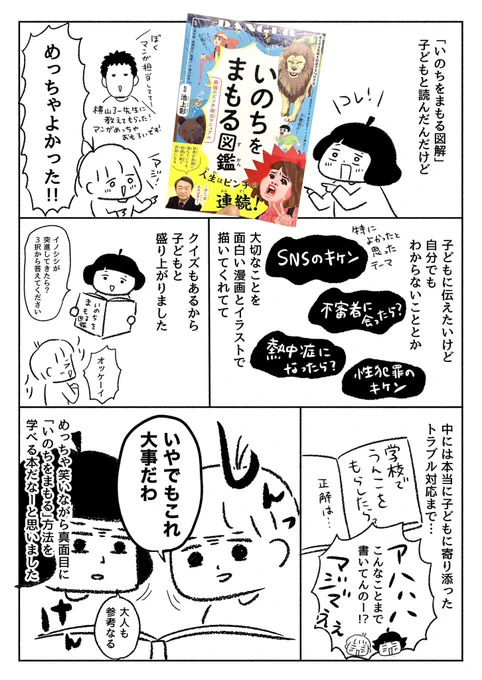 「いのちをまもる図解」
子どもと読んだんだけど
コレ!
DANGER
いのちを
まもる図鑑
池上彰
人生はピンチの
連続!
ぼく
マンガ担当してて…
横山了一先生に
教えてもらった!
マンガめっちゃ
おもろいです!
アジ!
めっちゃよかった!!
子どもに伝えたいけど
自分でも
わからないこととか
特に
よかったと
思った
テーマ
SNSのキケン
不審者に
会ったら?
熱中症に
なったら?
性犯罪の
キケン
大切なことを
面白い漫画とイラストで
描いてくれてて
クイズもあるから
子どもと
盛り上がりました
イノシシが
突進してきたら?
3択から答えてください
いのちを
まもる
図鑑
オッケーイ
中には本当に子どもに寄り添った
トラブル対応まで…
学校で
うんこを
もらしたら?
正解は…
アハハハ
こんなことまで
書いてんのー!?
マジでぇぇ
いやでもこれ
大事だわ
大人も
参考なる
めっちゃ笑いながら真面目に
「いのちをまもる」方法を
学べる本だなーと思いました